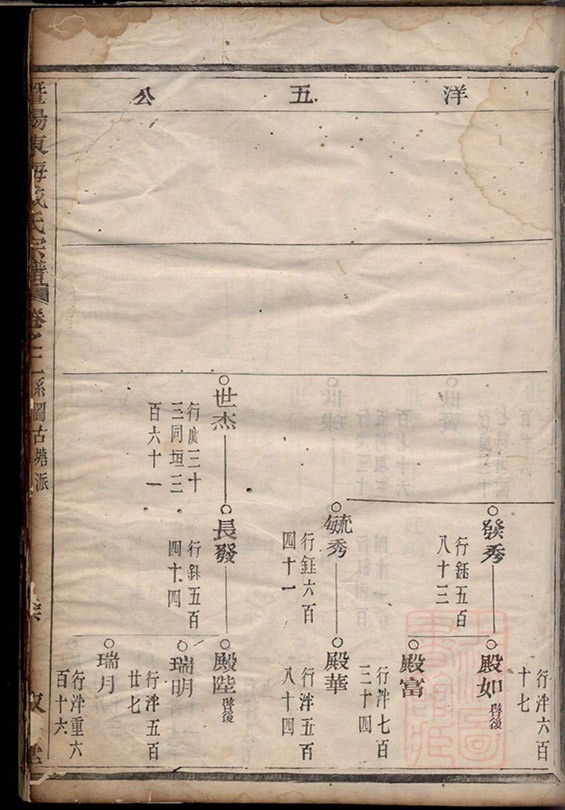 洋五公
發秀
行鈺五百
八十三
殿如
行泮六百
十七
殿富
行泮七百
三十四
毓秀
行鈺六百
四十一
殿華
行泮五百
八十四
世杰
行慶三十
三同垣三
百六十一
長發
行鈺五百
四十四
殿陞
瑞明
行泮五百
廿七
瑞月
行泮重六
百十六
氏宗譜
卷之二
系圖古塘派